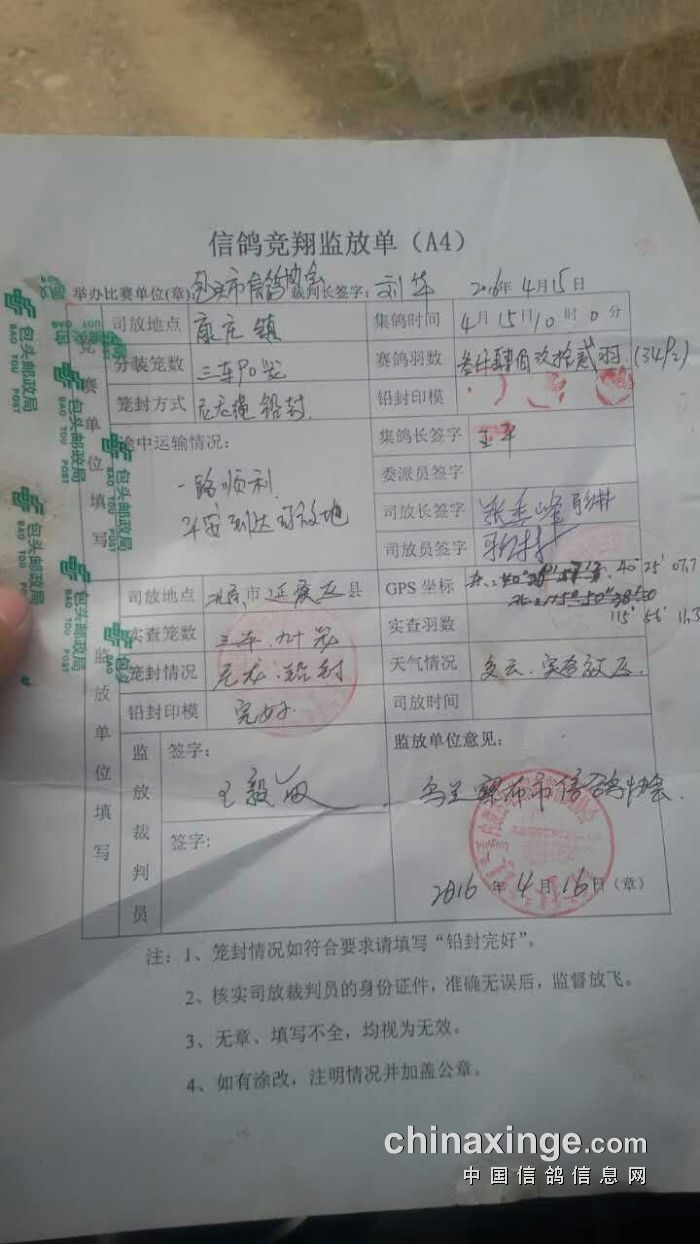 信鸽竞翔监放单（A4）
举办比赛单位(章): 包头市信鸽协会 裁判长签字: 刘华 2016年4月15日
竞赛单位填写
司放地点 康庄镇 集鸽时间 4月15日10时0分
分装笼数 三车90笼 赛鸽羽数 叁仟肆佰玖拾贰羽.(3492)
笼封方式 尼龙绳铅封. 铅封印模
途中运输情况: 集鸽长签字
一路顺利 委派员签字
平安到达司放地 司放长签字
司放员签字
监放单位填写
司放地点 北京市延庆县 GPS坐标 40°25′07.7
115°56′11.3
实查笼数 三车.九十笼 实查羽数
笼封情况 尼龙.铅封 天气情况 多云.
铅封印模 完好. 司放时间
监放裁判员
签字: 王毅 监放单位意见:
乌兰察布市信鸽协会.
签字:
2016年4月16日（章）
注：1、笼封情况如符合要求请填写“铅封完好”。
2、核实司放裁判员的身份证件，准确无误后，监督放飞。
3、无章、填写不全，均视为无效。
4、如有涂改，注明情况并加盖公章。
包头邮政局
BAO TOU POST
包头邮政局
BAO TOU POST
包头邮政局
BAO TOU POST
包头邮政局
BAO TOU POST
chinaxinge.com
中国信鸽信息网